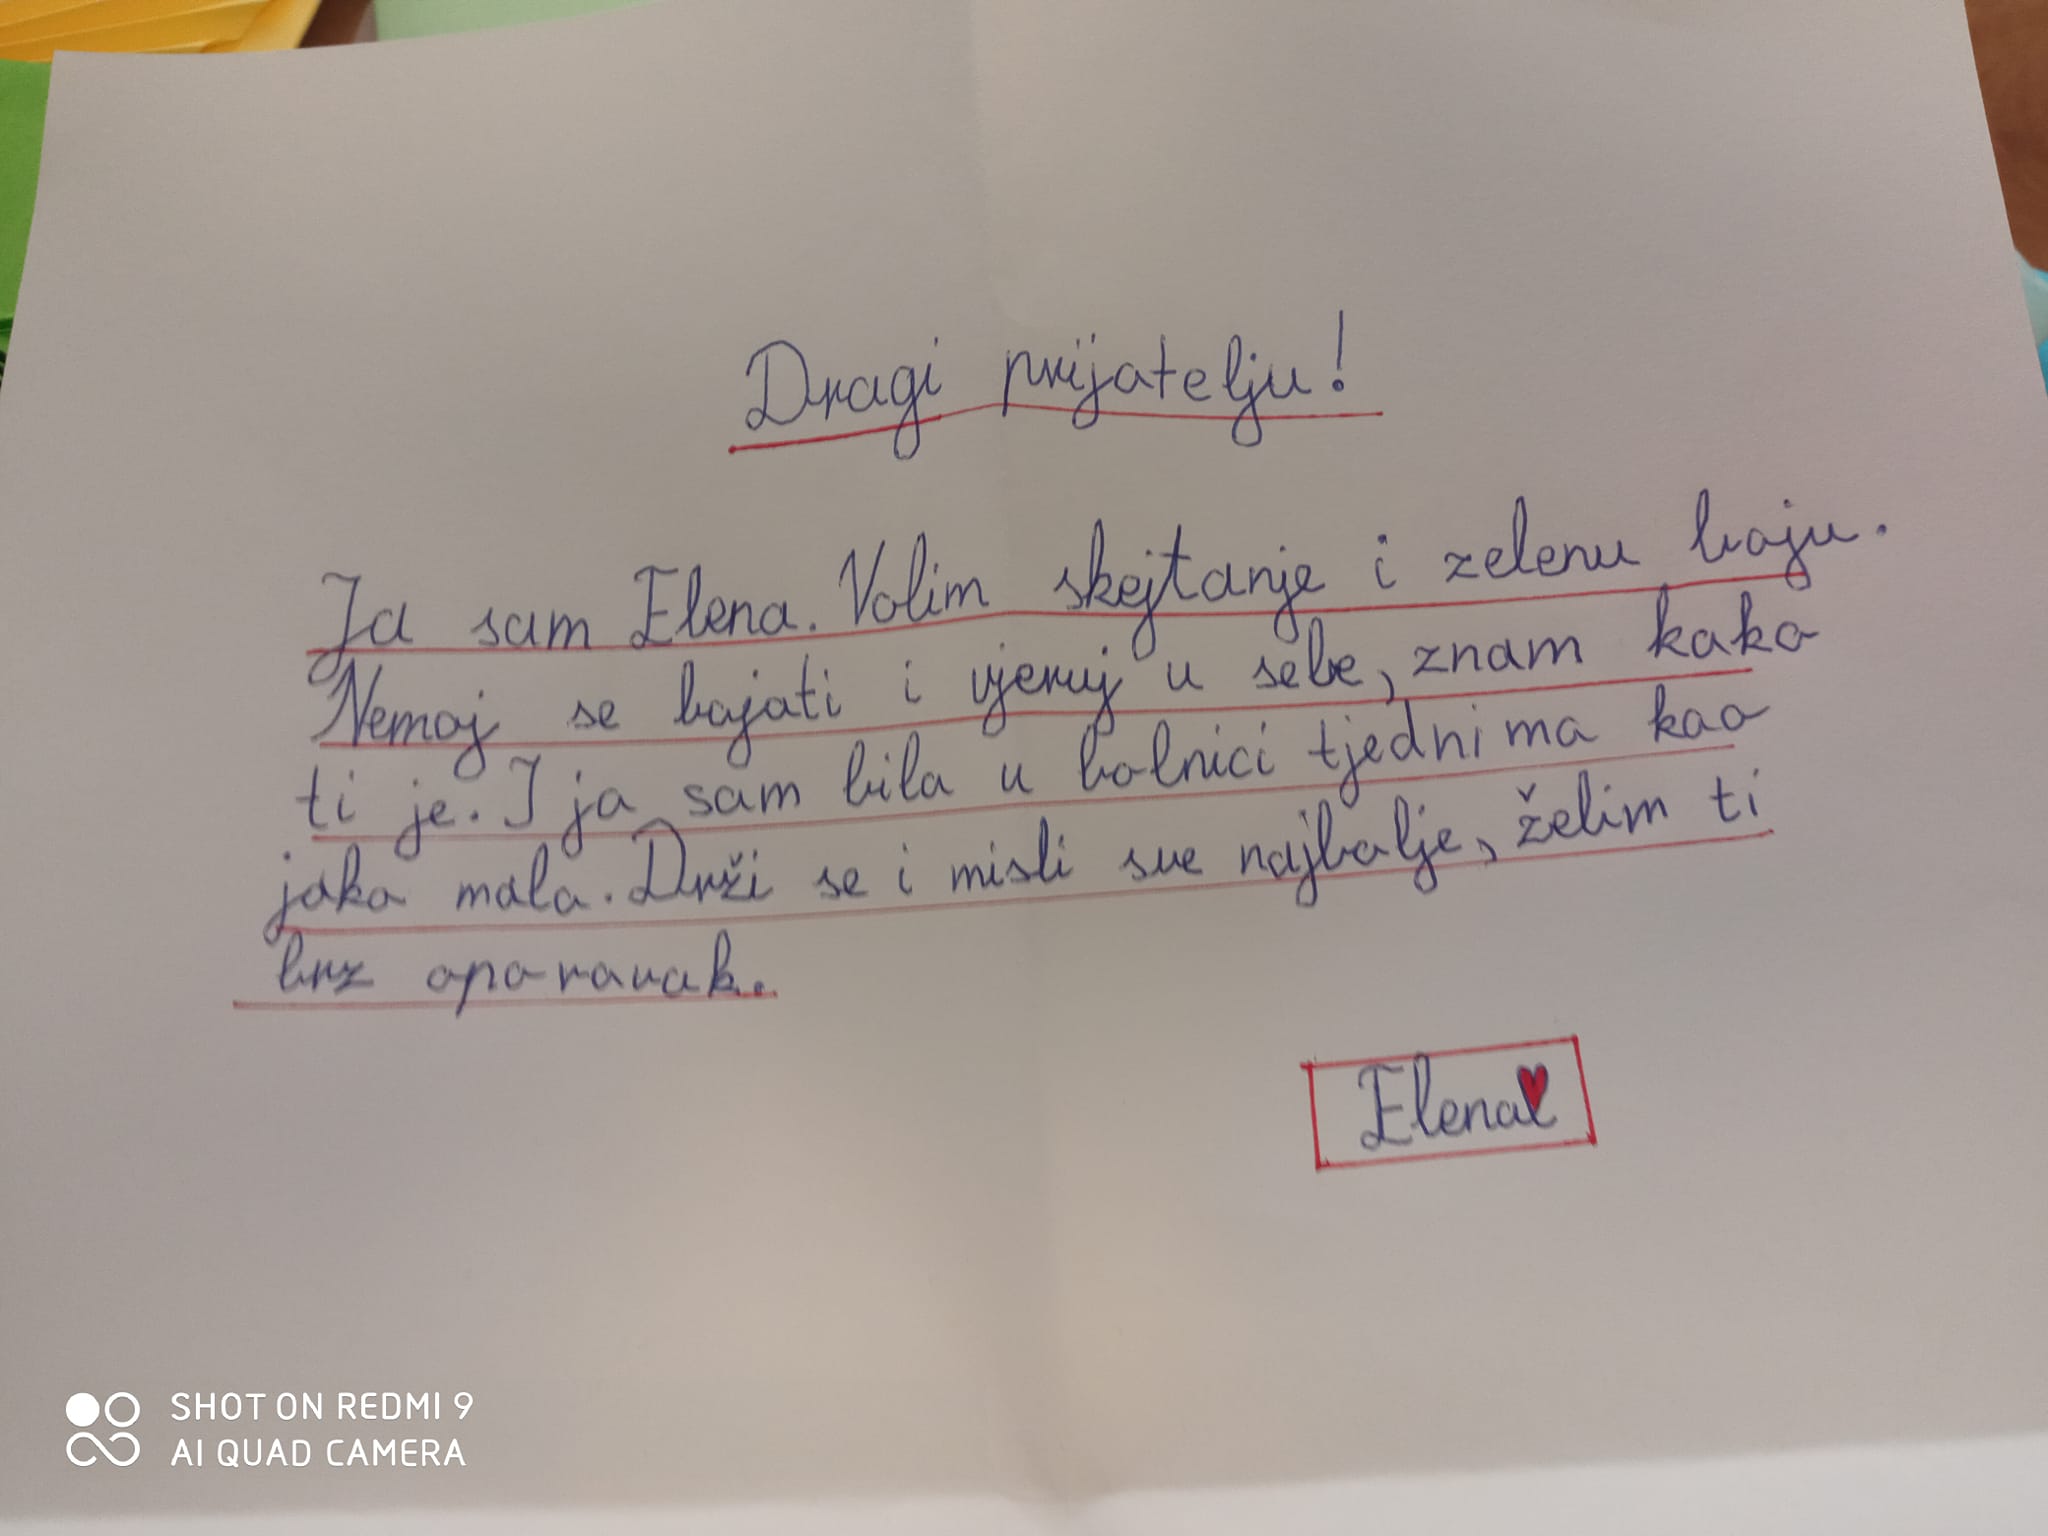 Dragi prijatelju!
Ja sam Elena. Volim skejtanje i zelenu boju.
Nemoj se bojati i vjeruj u sebe, znam kako
ti je. I ja sam bila u bolnici tjednima kao
jako mala. Drži se i misli sve najbolje, želim ti
brz oporavak.
Elena
SHOT ON REDMI 9
AI QUAD CAMERA